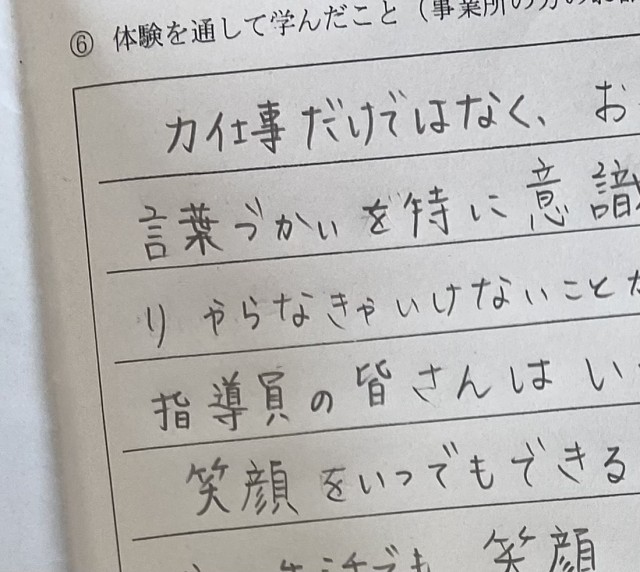 ⑥ 体験を通して学んだこと（事業所の方の
力仕事だけではなく、お
言葉づかいを特に意識
りやらなきゃいけないことが
指導員の皆さんはい
笑顔をいつでもできる
生活でも 笑顔